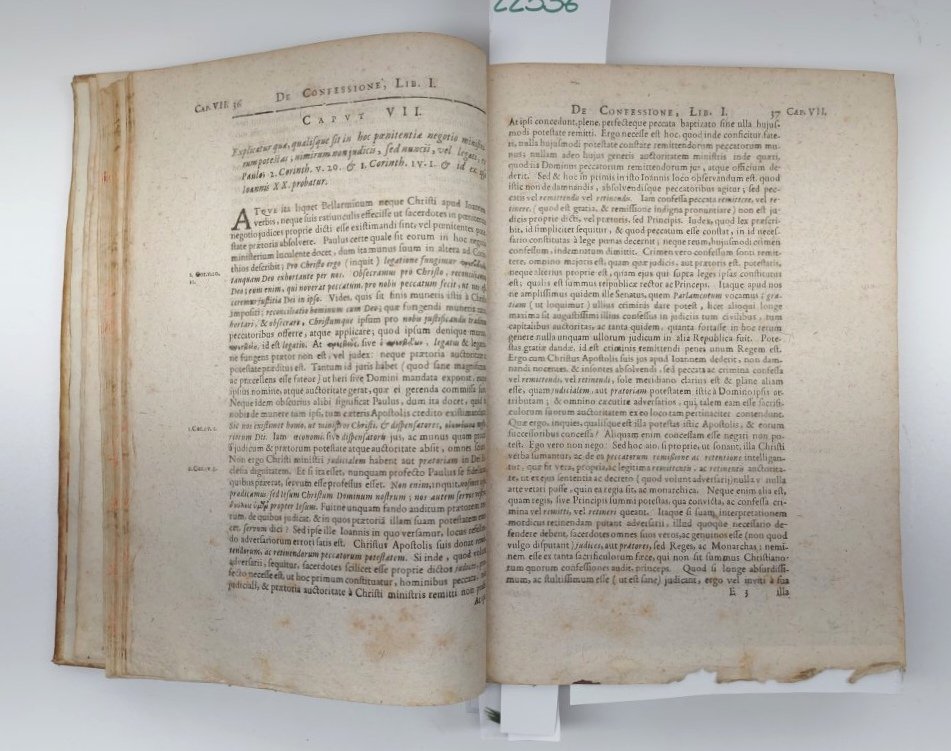 22556
CAP. VII. 36
DE CONFESSIONE, LIB. I.
CAPVT VII.
Explicatur quæ, qualisque sit in hoc pœnitentiæ negotio
rum potestas, nimirum non judicii, sed nuncii, vel legati,
Paulo 2. Corinth. v. 20. & 1. Corinth. IV. 1. & id ex
Ioannis XX. probatur.
ATQVE ita liquet Bellarminum neque Christi apud Ioannem
verbis, neque suis ratiunculis effecisse ut sacerdotes in pœnitentiæ
negotio judices proprie dicti esse existimandi sint, vel pœnitentes
state prætoria absolvere. Paulus certe quale sit eorum in hoc negotio
ministerium luculente docet, dum ita munus suum in altera ad Corin
thios describit; Pro Christo ergo (inquit) legatione fungimur
tanquam Deo exhortante per nos. Obsecramus pro Christo, reconciliamini
Deo; eum enim, qui noverat peccatum, pro nobis peccatum fecit, ut nos
ceremur justitia Dei in ipso. Vides, quis sit finis muneris istis à Christo
impositi; reconciliatio hominum cum Deo; quæ fungendi muneris
hortari, & obsecrare, Christumque ipsum pro nobis justificandis traditum
peccatoribus offerre, atque applicare; quod ipsum denique munus,
id est legatio. At sive legatus & legatio
ne fungens prætor non est, vel judex: neque prætoria auctoritate
potestate præditus est. Tantum id juris habet (quod sane magnificum
ac præcellens esse fateor) ut heri sive Domini mandata exponat,
ipsius nomine, atque auctoritate gerat, quæ ei gerenda commissa sunt.
Neque idem obscurius alibi significat Paulus, dum ita docet, quid
nobis de munere tum ipsi, tum cæteris Apostolis credito existimandum
Sic nos existimet homo, ut ministros Christi, & dispensatores,
riorum Dei. Iam œconomi sive dispensatoris jus, ac munus quam procul
à judicum & prætorum potestate atque auctoritate absit, omnes sciunt
Non ergo Christi ministri judicialem habent aut prætoriam in Dei Ec
clesia dignitatem. Et si ita esset, nunquam profecto Paulus se fidelium,
quibus præerat, servum esse professus esset. Non enim, inquit,
prædicamus, sed Iesum Christum Dominum nostrum; nos autem servos
propter Iesum. Fuitne unquam fando auditum prætorem
rum, de quibus judicat, & in quos prætoriâ illam suam potestatem
cet, servum dici? Sed ipse ille Ioannis in quo versamur, locus refellendo
do adversariorum errori satis est. Christus Apostolis suis donat
tendorum, ac retinendorum peccatorum potestatem. Si inde, quod volunt
adversarii, sequitur, sacerdotes scilicet esse proprie dictos judices,
fecto necesse est, ut hoc primum constituatur, hominibus peccata,
judiciali, & prætoria auctoritate à Christi ministris remitti non posse.
At ipsi
2. Cor. v. 20.
21.
1. Cor. IV. 1.
2. Cor. IV. 5.
DE CONFESSIONE, LIB. I.
37 CAP. VII.
At ipsi concedunt, plene, perfecteque peccata baptizato sine ulla hujus-
modi potestate remitti. Ergo necesse est hoc, quod inde conficitur, fate-
ri, nulla hujusmodi potestate constare remittendorum peccatorum mu-
nus; nullam adeo hujus generis auctoritatem ministris inde quæri,
quod iis Dominus peccatorum remittendorum jus, atque officium de-
derit. Sed & hoc in primis in isto Ioannis loco observandum est, quod
istic non de damnandis, absolvendisque peccatoribus agitur; sed pec-
catis vel remittendis vel retinendis. Iam confessa peccata remittere, vel re-
tinere, (quod est gratia, & remissione indigna pronuntiare) non est ju-
dicis proprie dicti, vel prætoris, sed Principis. Iudex, quod lex præscri-
bit, id simpliciter sequitur, & quod peccatum esse constat, in id neces-
sario constitutas à lege pœnas decernit; neque reum, hujusmodi crimen
confessum, indemnatum dimittit. Crimen vero confessum sonti remit-
tere, omnino majoris est, quam quæ judicis, aut prætoris est, potestatis,
neque alterius proprie est, quam ejus qui supra leges ipsas constitutus
est; qualis est summus reipublicæ rector ac Princeps. Itaque apud nos
ne amplissimus quidem ille Senatus, quem Parlamentum vocamus (gra-
tiam (ut loquimur) ullius criminis dare potest, licet alioqui longe
maxima sit augustissimi illius confessus in judiciis tum civilibus, tum
capitalibus auctoritas, ac tanta quidem, quanta fortasse in hoc rerum
genere nulla unquam ullorum judicum in alia Republica fuit. Pote-
stas gratiæ dandæ, id est criminis remittendi penes unum Regem est.
Ergo cum Christus Apostolis suis jus apud Ioannem dederit, non dam-
nandi nocentes, & insontes absolvendi, sed peccata ac crimina confessa
vel remittendi, vel retinendi, sole meridiano clarius est & plane aliam
esse, quam judicialem, aut prætoriam potestatem istic à Domino ipsis at-
tributam; & omnino cæcutire adversarios, qui talem eam esse sacrifi-
culorum suorum auctoritatem ex eo loco tam pertinaciter contendunt.
Quæ ergo, inquies, qualisque est illa potestas istic Apostolis, & eorum
successoribus concessa? Aliquam enim concessam esse negari non po-
test. Ego vero non nego. Sed hoc aio, si proprie, ut sonant, illa Christi
verba sumantur, ac de ea peccatorum remissione ac retentione intelligan-
tur, quæ fit vera, propria, ac legitima remittentis, ac retinentis auctorita-
te, ut ex ejus sententia ac decreto (quod volunt adversarii) nulla vi nulla
arte vetari possit, quin ea regia sit, ac monarchica. Neque enim alia est,
quam regis, sive Principis summi potestas, qua convicta, ac confessa cri-
mina vel remitti, vel retineri queant. Itaque si suam interpretationem
mordicus retinendam putant adversarii, illud quoque necessario de-
fendere debent, sacerdotes omnes suos veros, ac genuinos esse (non quod
vulgo disputant) judices, aut prætores, sed Reges, ac Monarchas; nemi-
nem esse ex tanta sacrificulorum fæce, qui non sit summus Christiano-
rum quorum confessiones audit, princeps. Quod si longe absurdissi-
mum, ac stultissimum esse (ut est sane) judicant, ergo vel inviti à sua
E 3 illa